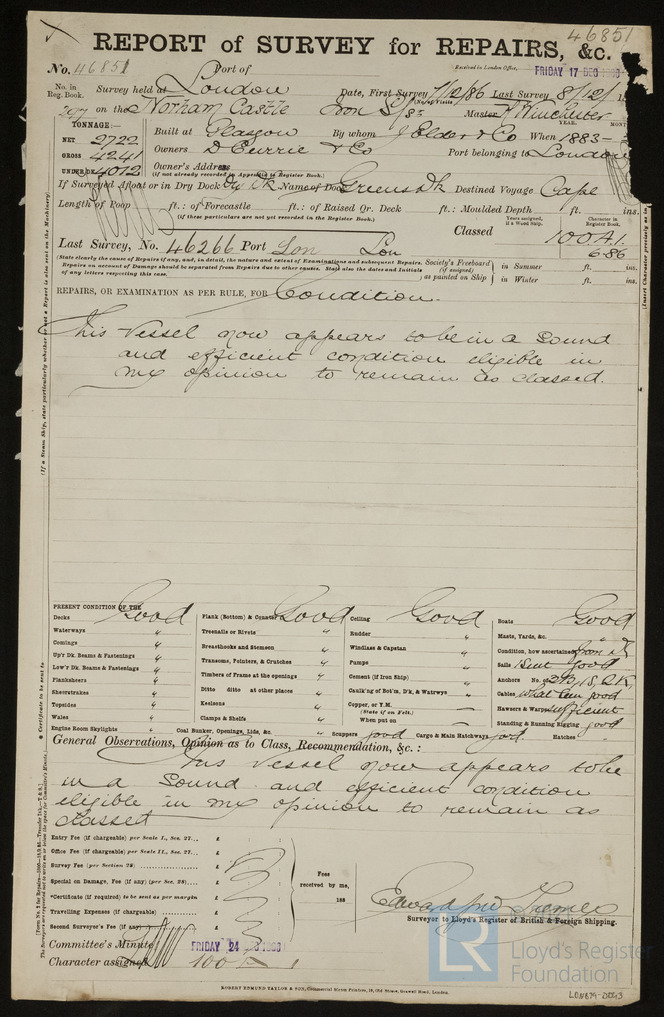 46851
REPORT of SURVEY for REPAIRS, &c.
No. 46851 Port of
Received in London Office, FRIDAY 17 DEC 1886
No. in Reg. Book. Survey held at London Date, First Survey 7/12/86 Last Survey 8/12/
on the Norham Castle Iron Master Winchester
TONNAGE:—
NET 2722
GROSS 4241
UNDER DK 4012
Built at Glasgow By whom J Elder & Co When 1883
YEAR. MONTH
Owners D Currie & Co Port belonging to London
Owner's Address
(if not already recorded in Appendix to Register Book.)
If Surveyed Afloat or in Dry Dock Dry Dk Name of Dock Greens Dk Destined Voyage Cape
Length of Poop ft.: of Forecastle ft.: of Raised Qr. Deck ft.: Moulded Depth ft. ins.
(if these particulars are not yet recorded in the Register Book.)
Years assigned, if a Wood Ship. Character in Register Book.
Last Survey, No. 46266 Port Lon Lon Classed 100 A.1.
6-86
(State clearly the cause of Repairs if any, and, in detail, the nature and extent of Examinations and subsequent Repairs.
Repairs on account of Damage should be separated from Repairs due to other causes. State also the dates and Initials
of any letters respecting this case.)
Society's Freeboard (if assigned) as painted on Ship
in Summer ft. ins.
in Winter ft. ins.
REPAIRS, OR EXAMINATION AS PER RULE, FOR Condition.
This Vessel now appears to be in a Sound
and efficient condition eligible in
my opinion to remain as classed.
PRESENT CONDITION OF THE
Decks Good
Waterways "
Comings "
Up'r Dk. Beams & Fastenings "
Low'r Dk. Beams & Fastenings "
Planksheers "
Sheerstrakes "
Topsides "
Wales "
Engine Room Skylights "
Plank (Bottom) & Counter Good
Treenails or Rivets "
Breasthooks and Stemson "
Transoms, Pointers, & Crutches "
Timbers of Frame at the openings "
Ditto ditto at other places "
Keelsons "
Clamps & Shelfs "
Coal Bunker, Openings, Lids, &c. "
Ceiling Good
Rudder "
Windlass & Capstan "
Pumps "
Cement (if Iron Ship) "
Caulk'ng of Bot'm, D'k, & Watrwys "
Copper, or Y.M. —
(State if on Felt.)
When put on —
Scuppers good Cargo & Main Hatchways good
Boats Good
Masts, Yards, &c. "
Condition, how ascertained from Dk
Sails Bent good
Anchors No. of 3B, 1S, 2K
Cables what seen good
Hawsers & Warps sufficient
Standing & Running Rigging good
Hatches "
General Observations, Opinion as to Class, Recommendation, &c.:
This Vessel now appears to be
in a Sound and efficient condition
eligible in my opinion to remain as
classed
Entry Fee (if chargeable) per Scale I., Sec. 27... £
Office Fee (if chargeable) per Scale II., Sec. 27... £
Survey Fee (per Section 28) £
Special on Damage, Fee (if any) (per Sec. 28) £
*Certificate (if required) to be sent as per margin £
Travelling Expenses (if chargeable) £
Second Surveyor's Fee (if any) £
Fees received by me,
188
Surveyor to Lloyd's Register of British & Foreign Shipping.
Committee's Minute FRIDAY 24
Character assigned 100 A 1
LR Lloyd's Register Foundation
ROBERT EDMUND TAYLOR & SON, Commercial Steam Printers, 19, Old Street, Goswell Road, London.
LON679-0063